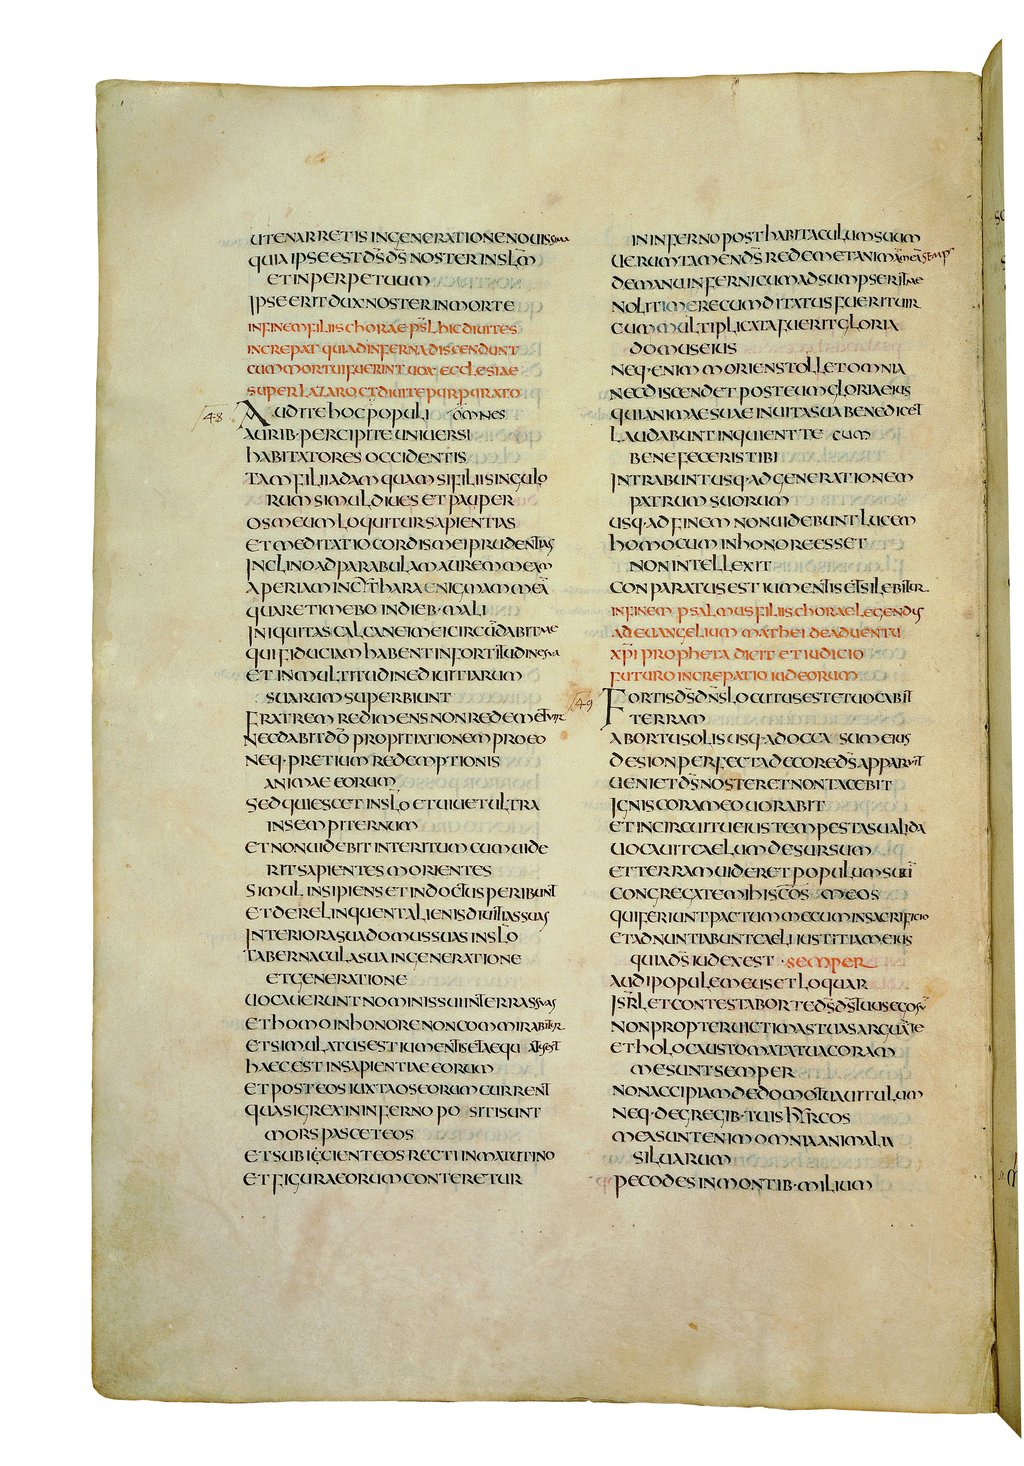 UTENARRETIS INGENERATIONE NOUISSIMA
QUIA IPSE EST D̅S̅ D̅S̅ NOSTER IN SL̅M
ET IN PERPETUUM
IPSE ERIT DUX NOSTER IN MORTE
IN FINEM FILIIS CHORAE PS̅L HIC DIUITES
INCREPAT QUI AD INFERNA DISCENDUNT
CUM MORTUI FUERINT UOX ECCLESIAE
SUPER LAZARO ET DIUITE PURPURATO
48 AUDITE HOC POPULI OMNES
AURIB· PERCIPITE UNIUERSI
HABITATORES OCCIDENTIS
TAM FILII ADAM QUAM SI FILII SINGULO
RUM SIMUL DIUES ET PAUPER
OS MEUM LOQUITUR SAPIENTIAS
ET MEDITATIO CORDIS MEI PRUDENTIAS
INCLINO AD PARABULAM AUREM MEAM
APERIAM IN CITHARA ENIGMAM MEA̅
QUARE TIMEBO IN DIEB· MALI
INIQUITAS CALCANEI MEI CIRCU̅DABIT ME
QUI FIDUCIAM HABENT IN FORTITUDINE SUA
ET IN MULTITUDINE DIUITIARUM
SUARUM SUPERBIUNT
FRATREM REDIMENS NON REDEMET UIR
NEC DABIT D̅O̅ PROPITIATIONEM PRO EO
NEQ· PRETIUM REDEMPTIONIS
ANIMAE EORUM
SED QUIESCET IN SL̅O ET UIUET ULTRA
IN SEMPITERNUM
ET NON UIDEBIT INTERITUM CUM UIDE
RIT SAPIENTES MORIENTES
SIMUL INSIPIENS ET INDOCTUS PERIBUNT
ET DERELINQUENT ALIENIS DIUITIAS SUAS
INTERIORA SUA DOMUS SUAS IN SL̅O
TABERNACULA SUA IN GENERATIONE
ET GENERATIONE
UOCAUERUNT NOMINIS SUI IN TERRAS SUAS
ET HOMO IN HONORE NON COMMIRABITUR
ET SIMULATUS EST IUMENTIS ET AEQUATUS EST
HAEC EST INSAPIENTIAE EORUM
ET POST EOS IUXTA OS EORUM CURRENT
QUASI GREX IN INFERNO PO SITI SUNT
MORS PASCET EOS
ET SUBICIENT EOS RECTI IN MATUTINO
ET FIGURA EORUM CONTERETUR
IN INFERNO POST HABITACULUM SUUM
UERUMTAMEN D̅S̅ REDEMET ANIMA̅ MEA̅
DE MANU INFERNI CUM ADSUMPSERIT ME
NOLI TIMERE CUM DITATUS FUERIT UIR
CUM MULTIPLICATA FUERIT GLORIA
DOMUS EIUS
NEQ· ENIM MORIENS TOLLET OMNIA
NEC DISCENDET POST EUM GLORIA EIUS
QUI ANIMAE SUAE IN UITA SUA BENEDICET
LAUDABUNT INQUIENT TE CUM
BENEFECERIS TIBI
INTRABUNT USQ· AD GENERATIONEM
PATRUM SUORUM
USQ· AD FINEM NON UIDEBUNT LUCEM
HOMO CUM IN HONORE ESSET
NON INTELLEXIT
CONPARATUS EST IUMENTIS ET SILEBITUR
IN FINEM PSALMUS FILIIS CHORAE LEGENDUS
AD EUANGELIUM MATHEI DE ADUENTU
XP̅I PROPHETA DICIT ET IUDICIO
FUTURO INCREPATIO IUDEORUM
49 FORTIS D̅S̅ D̅N̅S̅ LOCUTUS EST ET UOCABIT
TERRAM
AB ORTU SOLIS USQ· AD OCCASUM EIUS
DE SION PERFECTA DECORE D̅S̅ APPARUIT
UENIET D̅S̅ NOSTER ET NON TACEBIT
IGNIS CORAM EO UORABIT
ET IN CIRCUITU EIUS TEMPESTAS UALIDA
UOCAUIT CAELUM DESURSUM
ET TERRAM UIDERET POPULUM SUU̅
CONGREGATE MIHI SC̅OS MEOS
QUI FERIUNT PACTUM MECUM IN SACRIFICIO
ET ADNUNTIABUNT CAELI IUSTITIAM EIUS
QUIA D̅S̅ IUDEX EST · SEMPER
AUDI POPULE MEUS ET LOQUAR
ISR̅L ET CONTESTABOR TE D̅S̅ D̅S̅ TUUS EGO SU̅
NON PROPTER UICTIMAS TUAS ARGUA̅ TE
ET HOLOCAUSTOMATA TUA CORAM
ME SUNT SEMPER
NON ACCIPIAM DE DOMO TUA UITULUM
NEQ· DE GREGIB· TUIS HYRCOS
MEA SUNT ENIM OMNIA ANIMALIA
SILUARUM
PECODES IN MONTIB· MILIUM